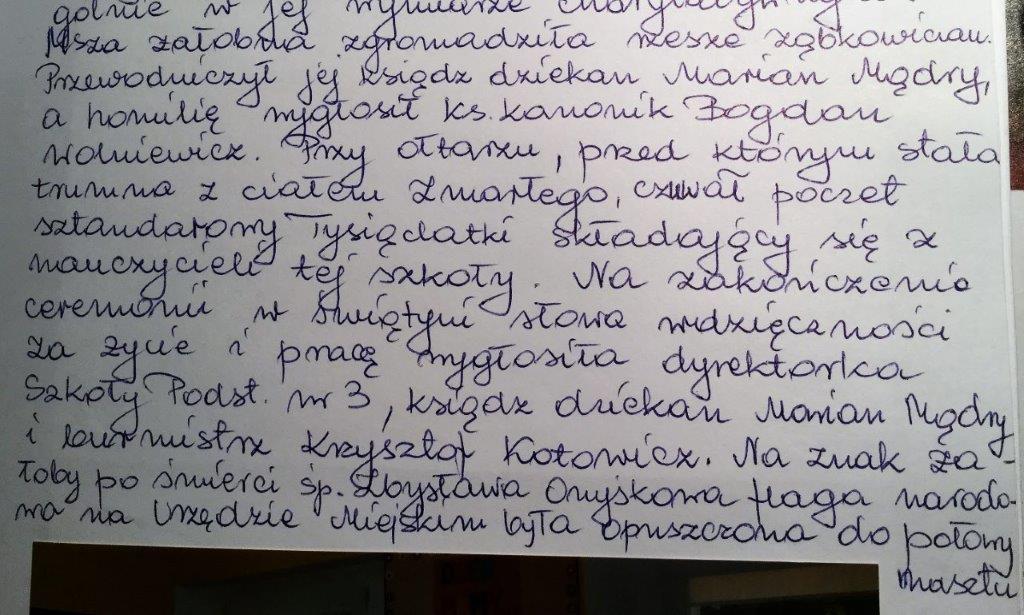 gólnie w jej wymiarze
Msza załobna zgromadziła rzesze ząbkowiczan.
Przewodniczył jej ksiądz dziekan Marian Mądry,
a homilię wygłosił ks. kanonik Bogdan
Wolniewicz. Przy ołtarzu, przed którym stała
trumna z ciałem zmarłego, czuwał poczet
sztandarowy Tysiąclatki składający się z
nauczycieli tej szkoły. Na zakończenie
ceremonii w świątyni słowa wdzięczności
za życie i pracę wygłosiła dyrektorka
Szkoły Podst. nr 3, ksiądz dziekan Marian Mądry
i burmistrz Krzysztof Kotowicz. Na znak ża-
łoby po śmierci śp. Zbysława Onyśkowa flaga narodo-
wa na Urzędzie Miejskim była opuszczona do połowy
masztu